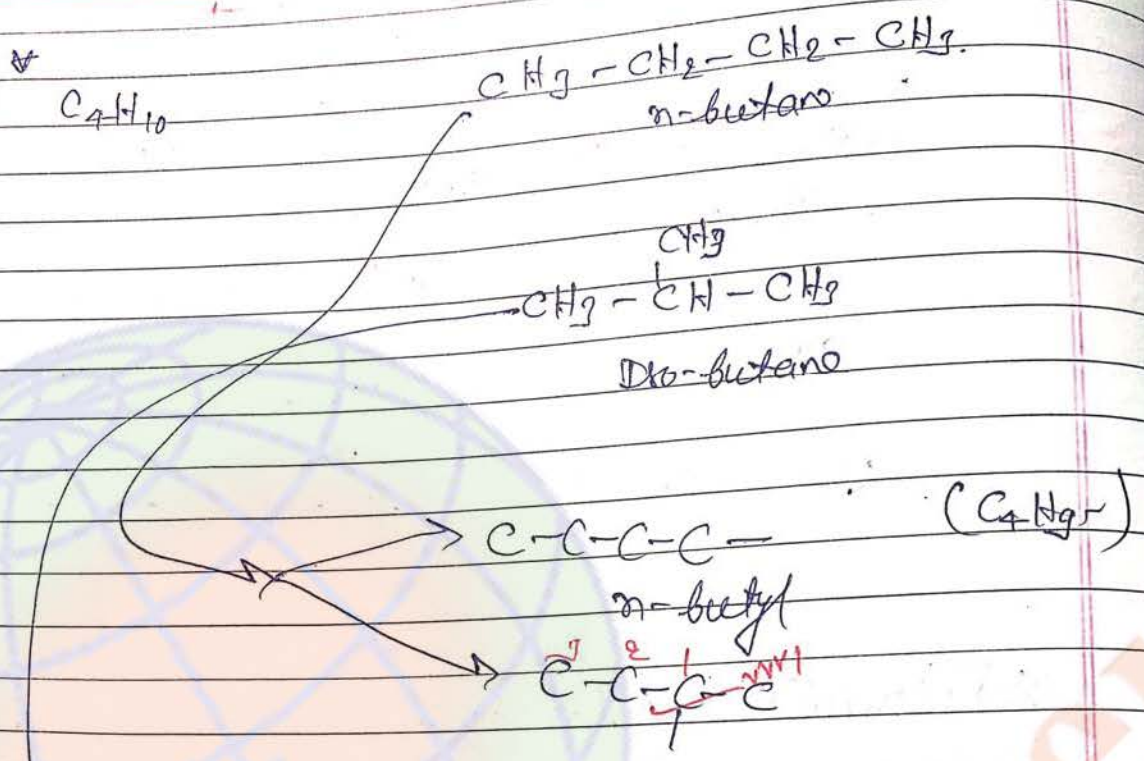 CH3 - CH2 - CH2 - CH3.
C4H10
n-butane
CH3
CH3 - CH - CH3
Iso-butane
C-C-C-C-
(C4H9-)
n-butyl
3 2 1
C-C-C-C